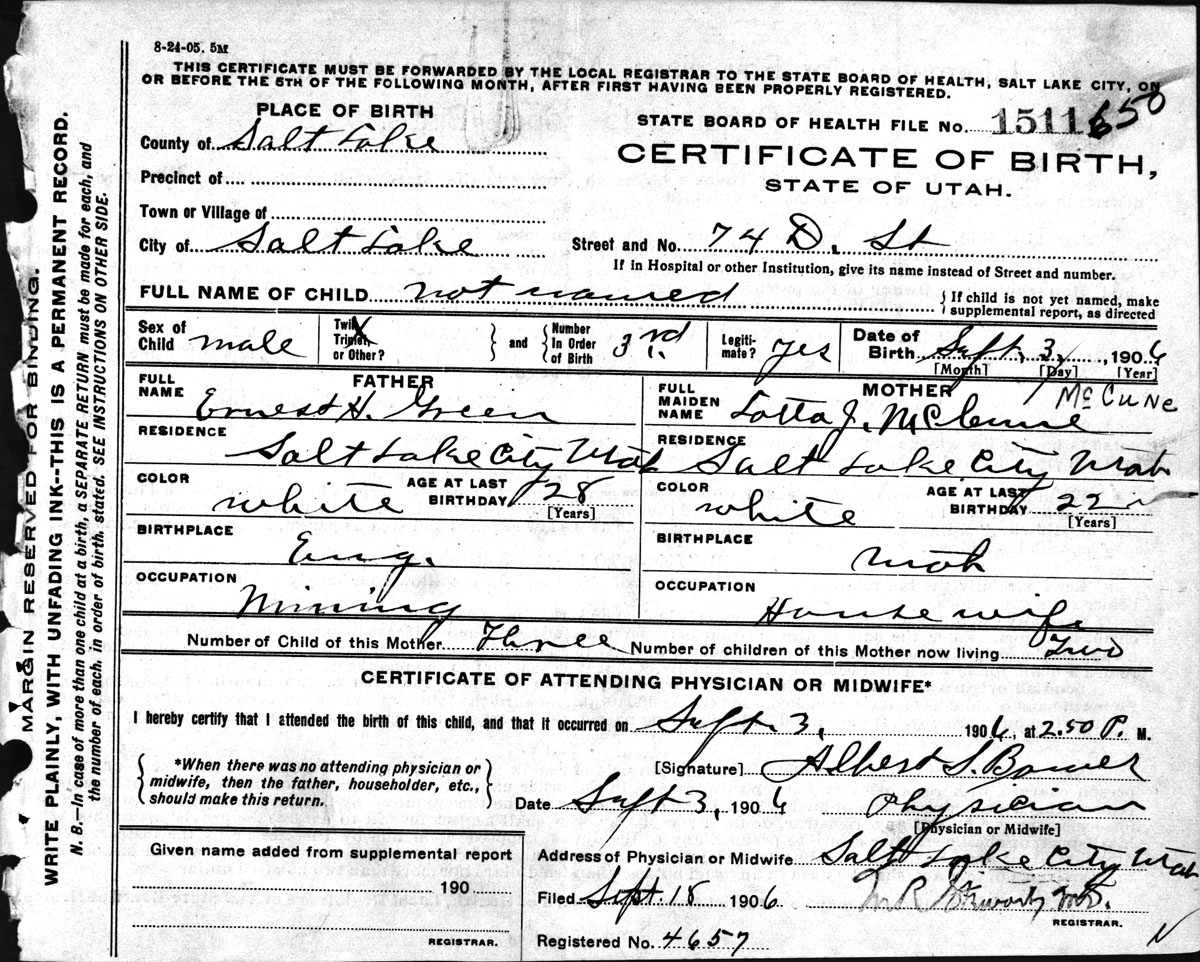 8-24-05. 5M
THIS CERTIFICATE MUST BE FORWARDED BY THE LOCAL REGISTRAR TO THE STATE BOARD OF HEALTH, SALT LAKE CITY, ON
OR BEFORE THE 5TH OF THE FOLLOWING MONTH, AFTER FIRST HAVING BEEN PROPERLY REGISTERED.
PLACE OF BIRTH
STATE BOARD OF HEALTH FILE No. 1511 650
County of Salt Lake
CERTIFICATE OF BIRTH,
STATE OF UTAH.
Precinct of
Town or Village of
City of Salt Lake Street and No. 74 D. St
If in Hospital or other Institution, give its name instead of Street and number.
FULL NAME OF CHILD not named } If child is not yet named, make
supplemental report, as directed
Sex of
Child male
Twin
Triplet
or Other? } and { Number
In Order
of Birth 3rd.
Legiti-
mate? yes
Date of
Birth Sept. 3, 1906
[Month] [Day] [Year]
FATHER
FULL
NAME Ernest H. Green
RESIDENCE
Salt Lake City Utah
COLOR white AGE AT LAST
BIRTHDAY 28
[Years]
BIRTHPLACE
Eng.
OCCUPATION
Mining
MOTHER McCUNE
FULL
MAIDEN
NAME Lotta J. McCune
RESIDENCE
Salt Lake City Utah
COLOR white AGE AT LAST
BIRTHDAY 22
[Years]
BIRTHPLACE
Utah
OCCUPATION
Housewife
Number of Child of this Mother Three Number of children of this Mother now living Two
CERTIFICATE OF ATTENDING PHYSICIAN OR MIDWIFE*
I hereby certify that I attended the birth of this child, and that it occurred on Sept. 3, 1906, at 2.50 P. M.
{ *When there was no attending physician or
midwife, then the father, householder, etc.,
should make this return. }
[Signature] Albert S. Bower
Date Sept 3, 1906 Physician
[Physician or Midwife]
Given name added from supplemental report
190
REGISTRAR.
Address of Physician or Midwife Salt Lake City Utah
Filed Sept. 18 1906 M.D.
REGISTRAR.
Registered No. 4657
MARGIN RESERVED FOR BINDING.
WRITE PLAINLY, WITH UNFADING INK--THIS IS A PERMANENT RECORD.
N. B.—In case of more than one child at a birth, a SEPARATE RETURN must be made for each, and
the number of each, in order of birth, stated. SEE INSTRUCTIONS ON OTHER SIDE.